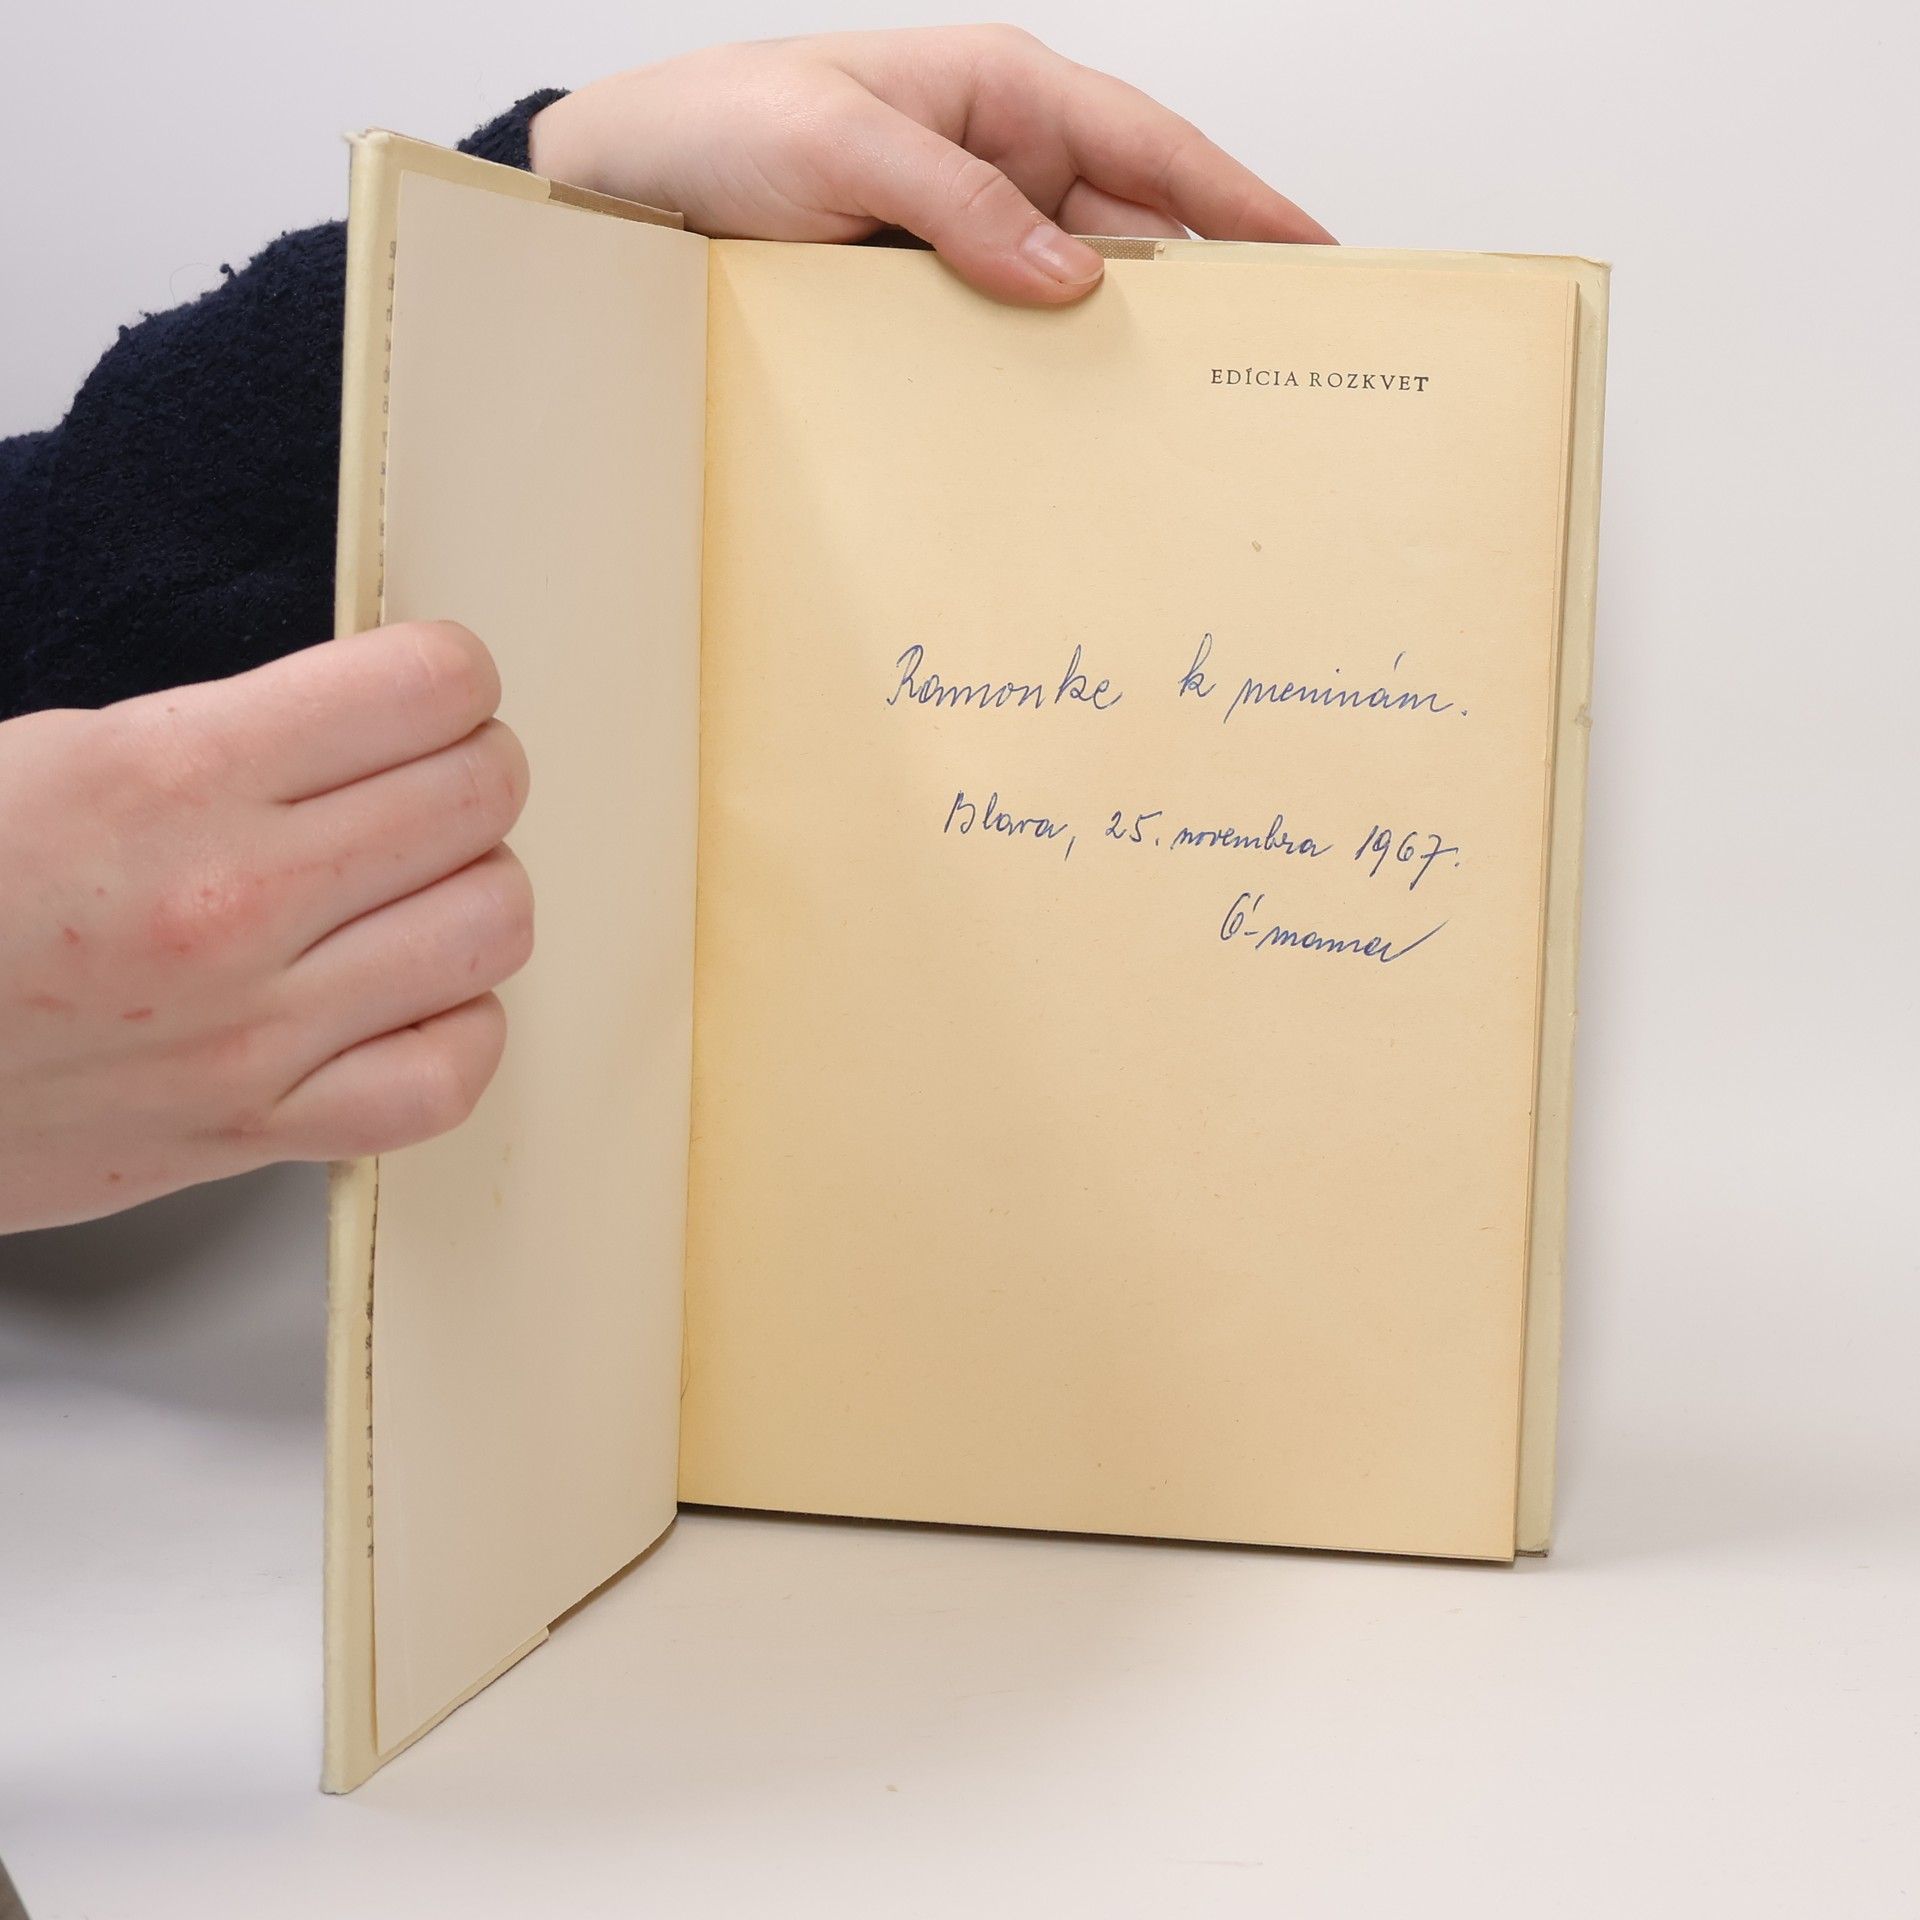 EDÍCIA ROZKVET
Ramonke k meninám.
Blava, 25. novembra 1967.
Ó-mama